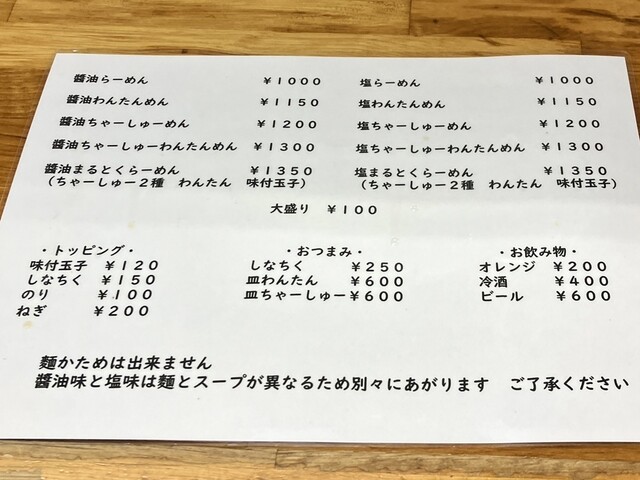 醬油らーめん ￥１０００ 塩らーめん ￥１０００
醬油わんたんめん ￥１１５０ 塩わんたんめん ￥１１５０
醬油ちゃーしゅーめん ￥１２００ 塩ちゃーしゅーめん ￥１２００
醬油ちゃーしゅーわんたんめん ￥１３００ 塩ちゃーしゅーわんたんめん ￥１３００
醬油まるとくらーめん ￥１３５０ 塩まるとくらーめん ￥１３５０
（ちゃーしゅー２種 わんたん 味付玉子） （ちゃーしゅー２種 わんたん 味付玉子）
大盛り ￥１００
・トッピング・ ・おつまみ・ ・お飲み物・
味付玉子 ￥１２０ しなちく ￥２５０ オレンジ ￥２００
しなちく ￥１５０ 皿わんたん ￥６００ 冷酒 ￥４００
のり ￥１００ 皿ちゃーしゅー￥６００ ビール ￥６００
ねぎ ￥２００
麵かためは出来ません
醬油味と塩味は麵とスープが異なるため別々にあがります ご了承ください